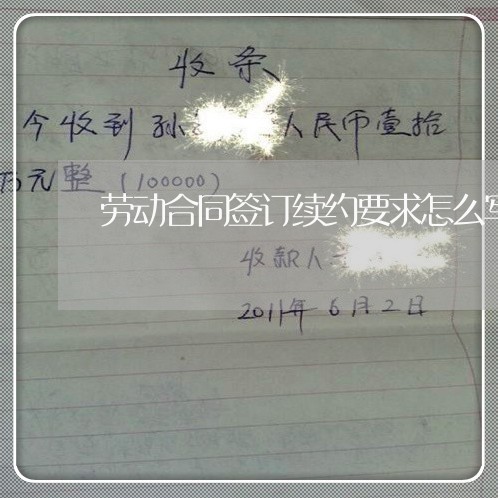 收条
今收到孙 人民币壹拾
万元整（100000）
劳动合同签订续约要求怎么写
收款人
2011年6月2日